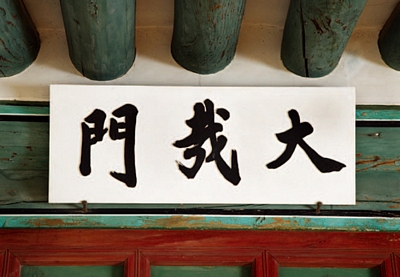 大哉門